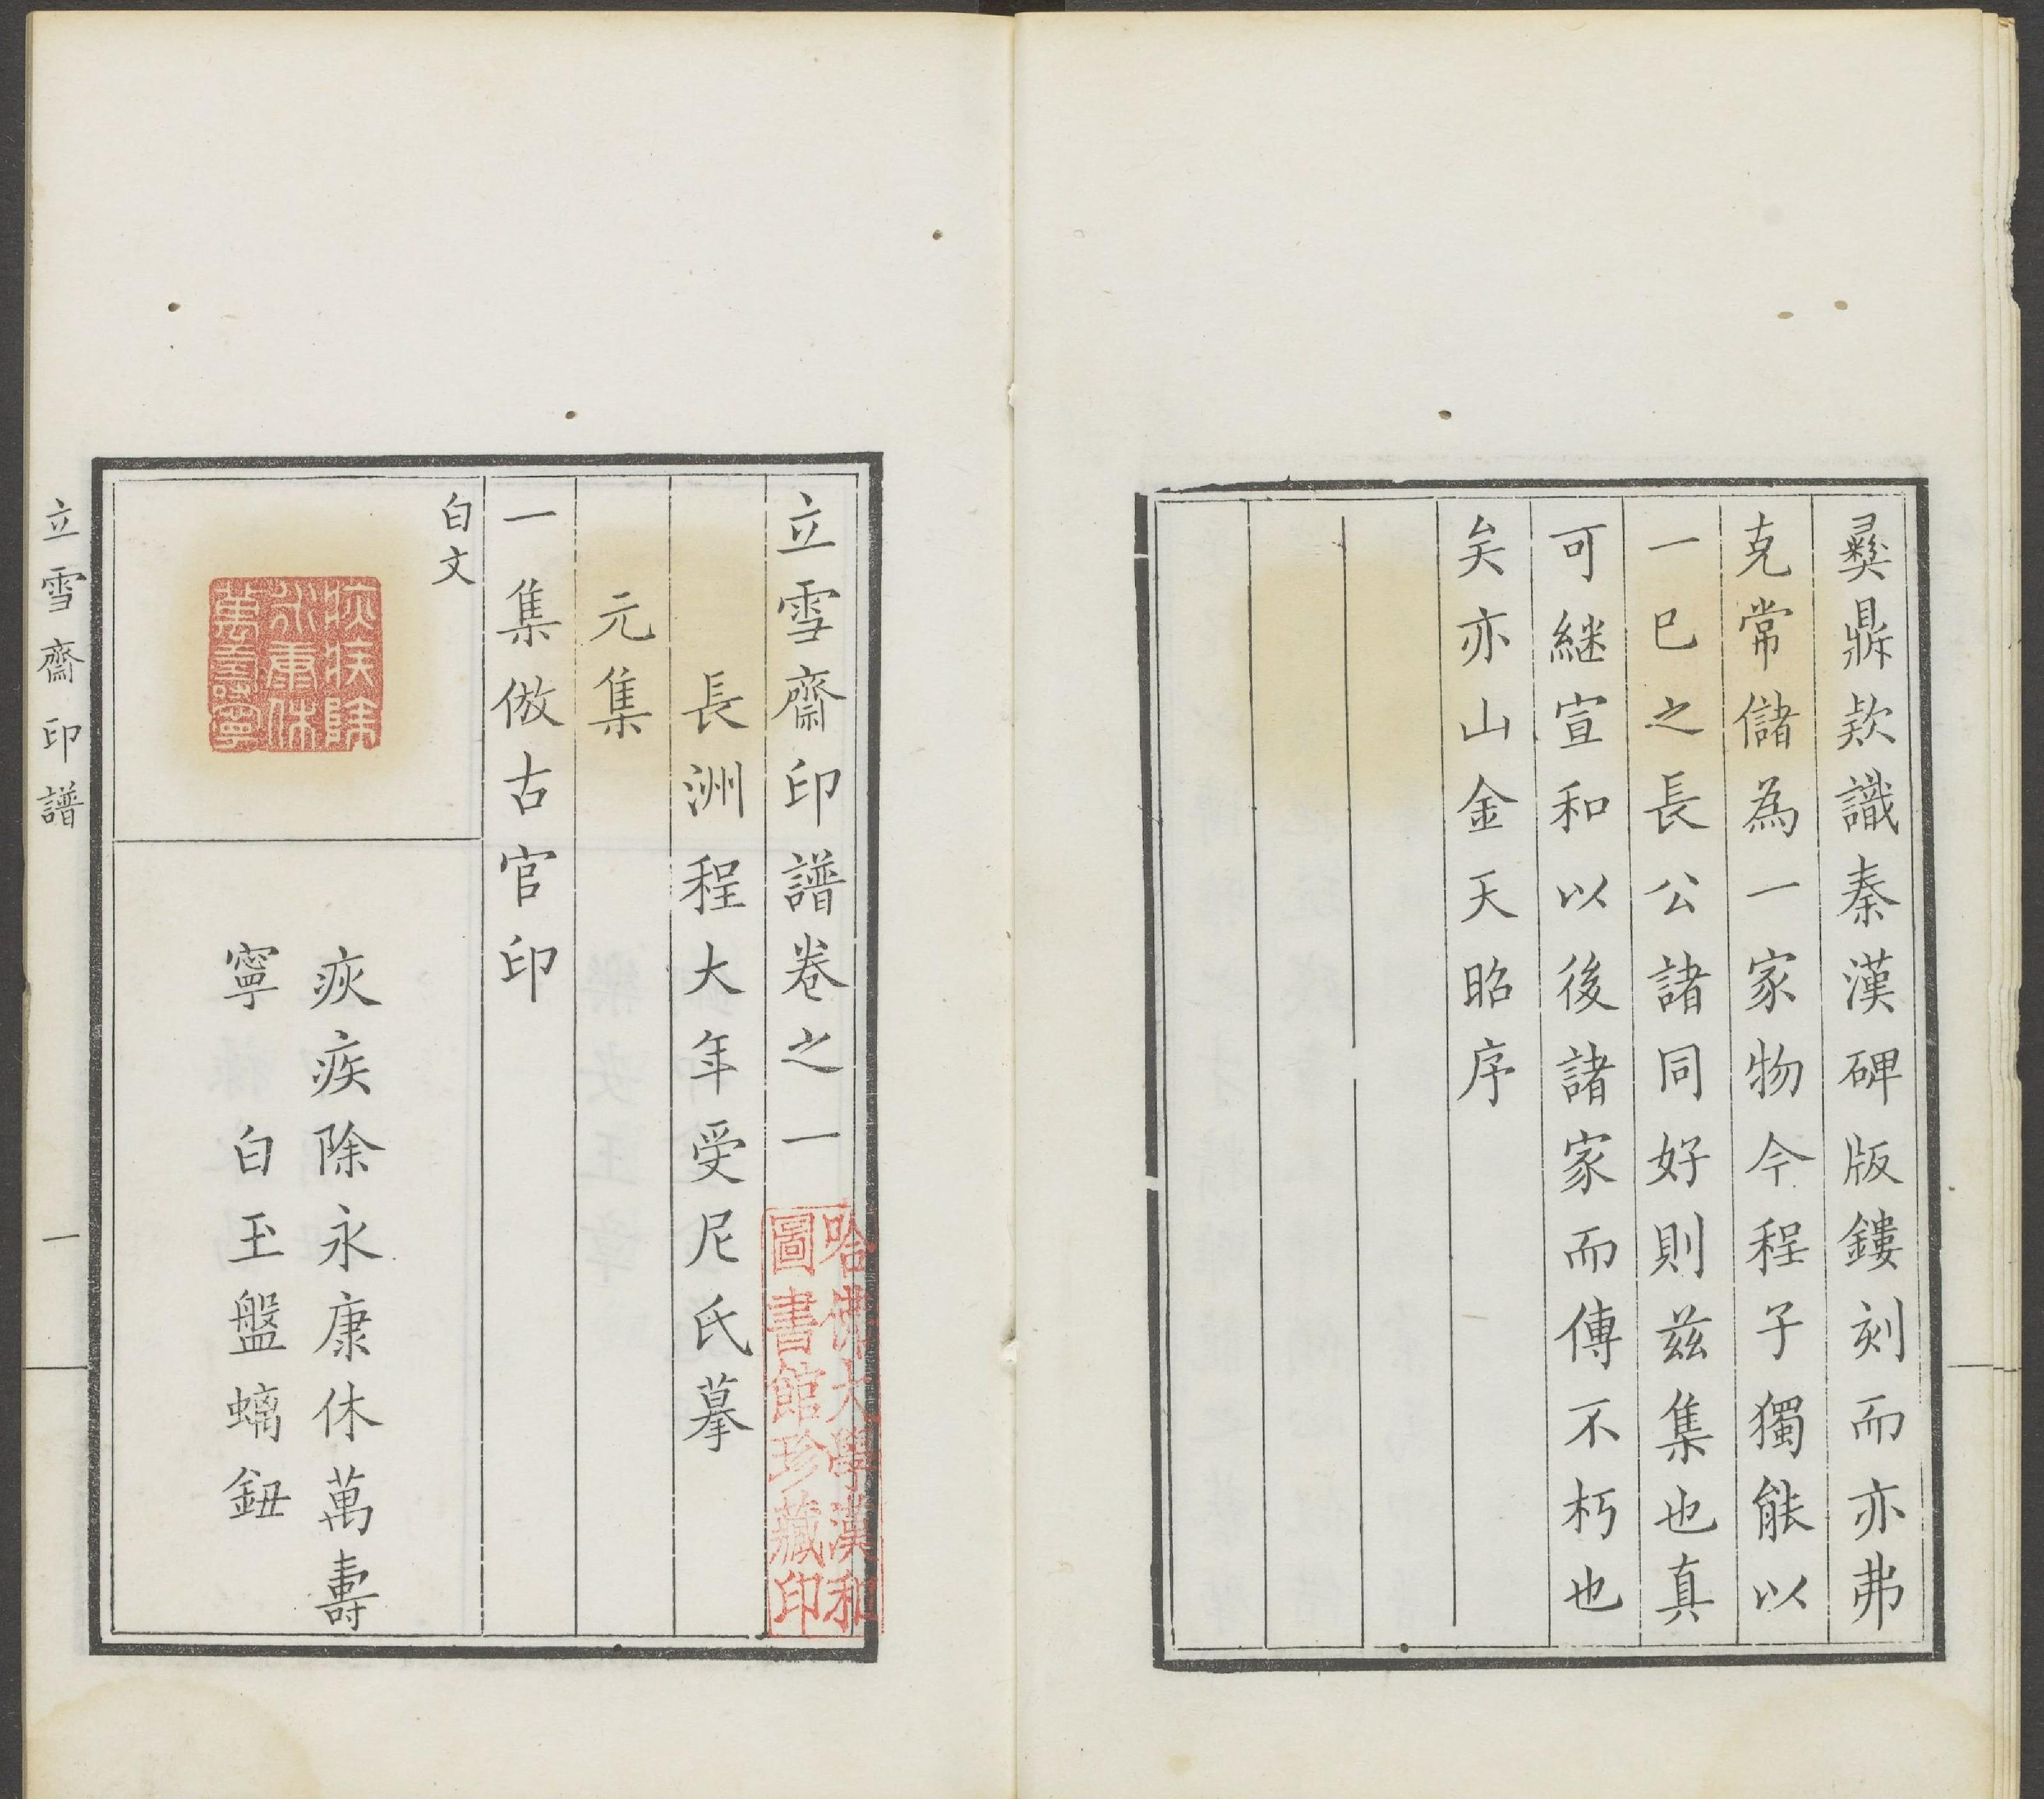 彝鼎欵識秦漢碑版鏤刻而亦弗
克常儲為一家物今程子獨能以
一已之長公諸同好則兹集也真
可継宣和以後諸家而傳不朽也
矣亦山金天昭序
立雪齋印譜卷之一
哈佛大學漢和
圖書館珍藏印
長洲程大年受尼氏摹
元集
一集倣古官印
白文
疢疾除
永康休
萬壽寧
疢疾除永康休萬壽
寧 白玉盤螭鈕
立雪齋印譜 一